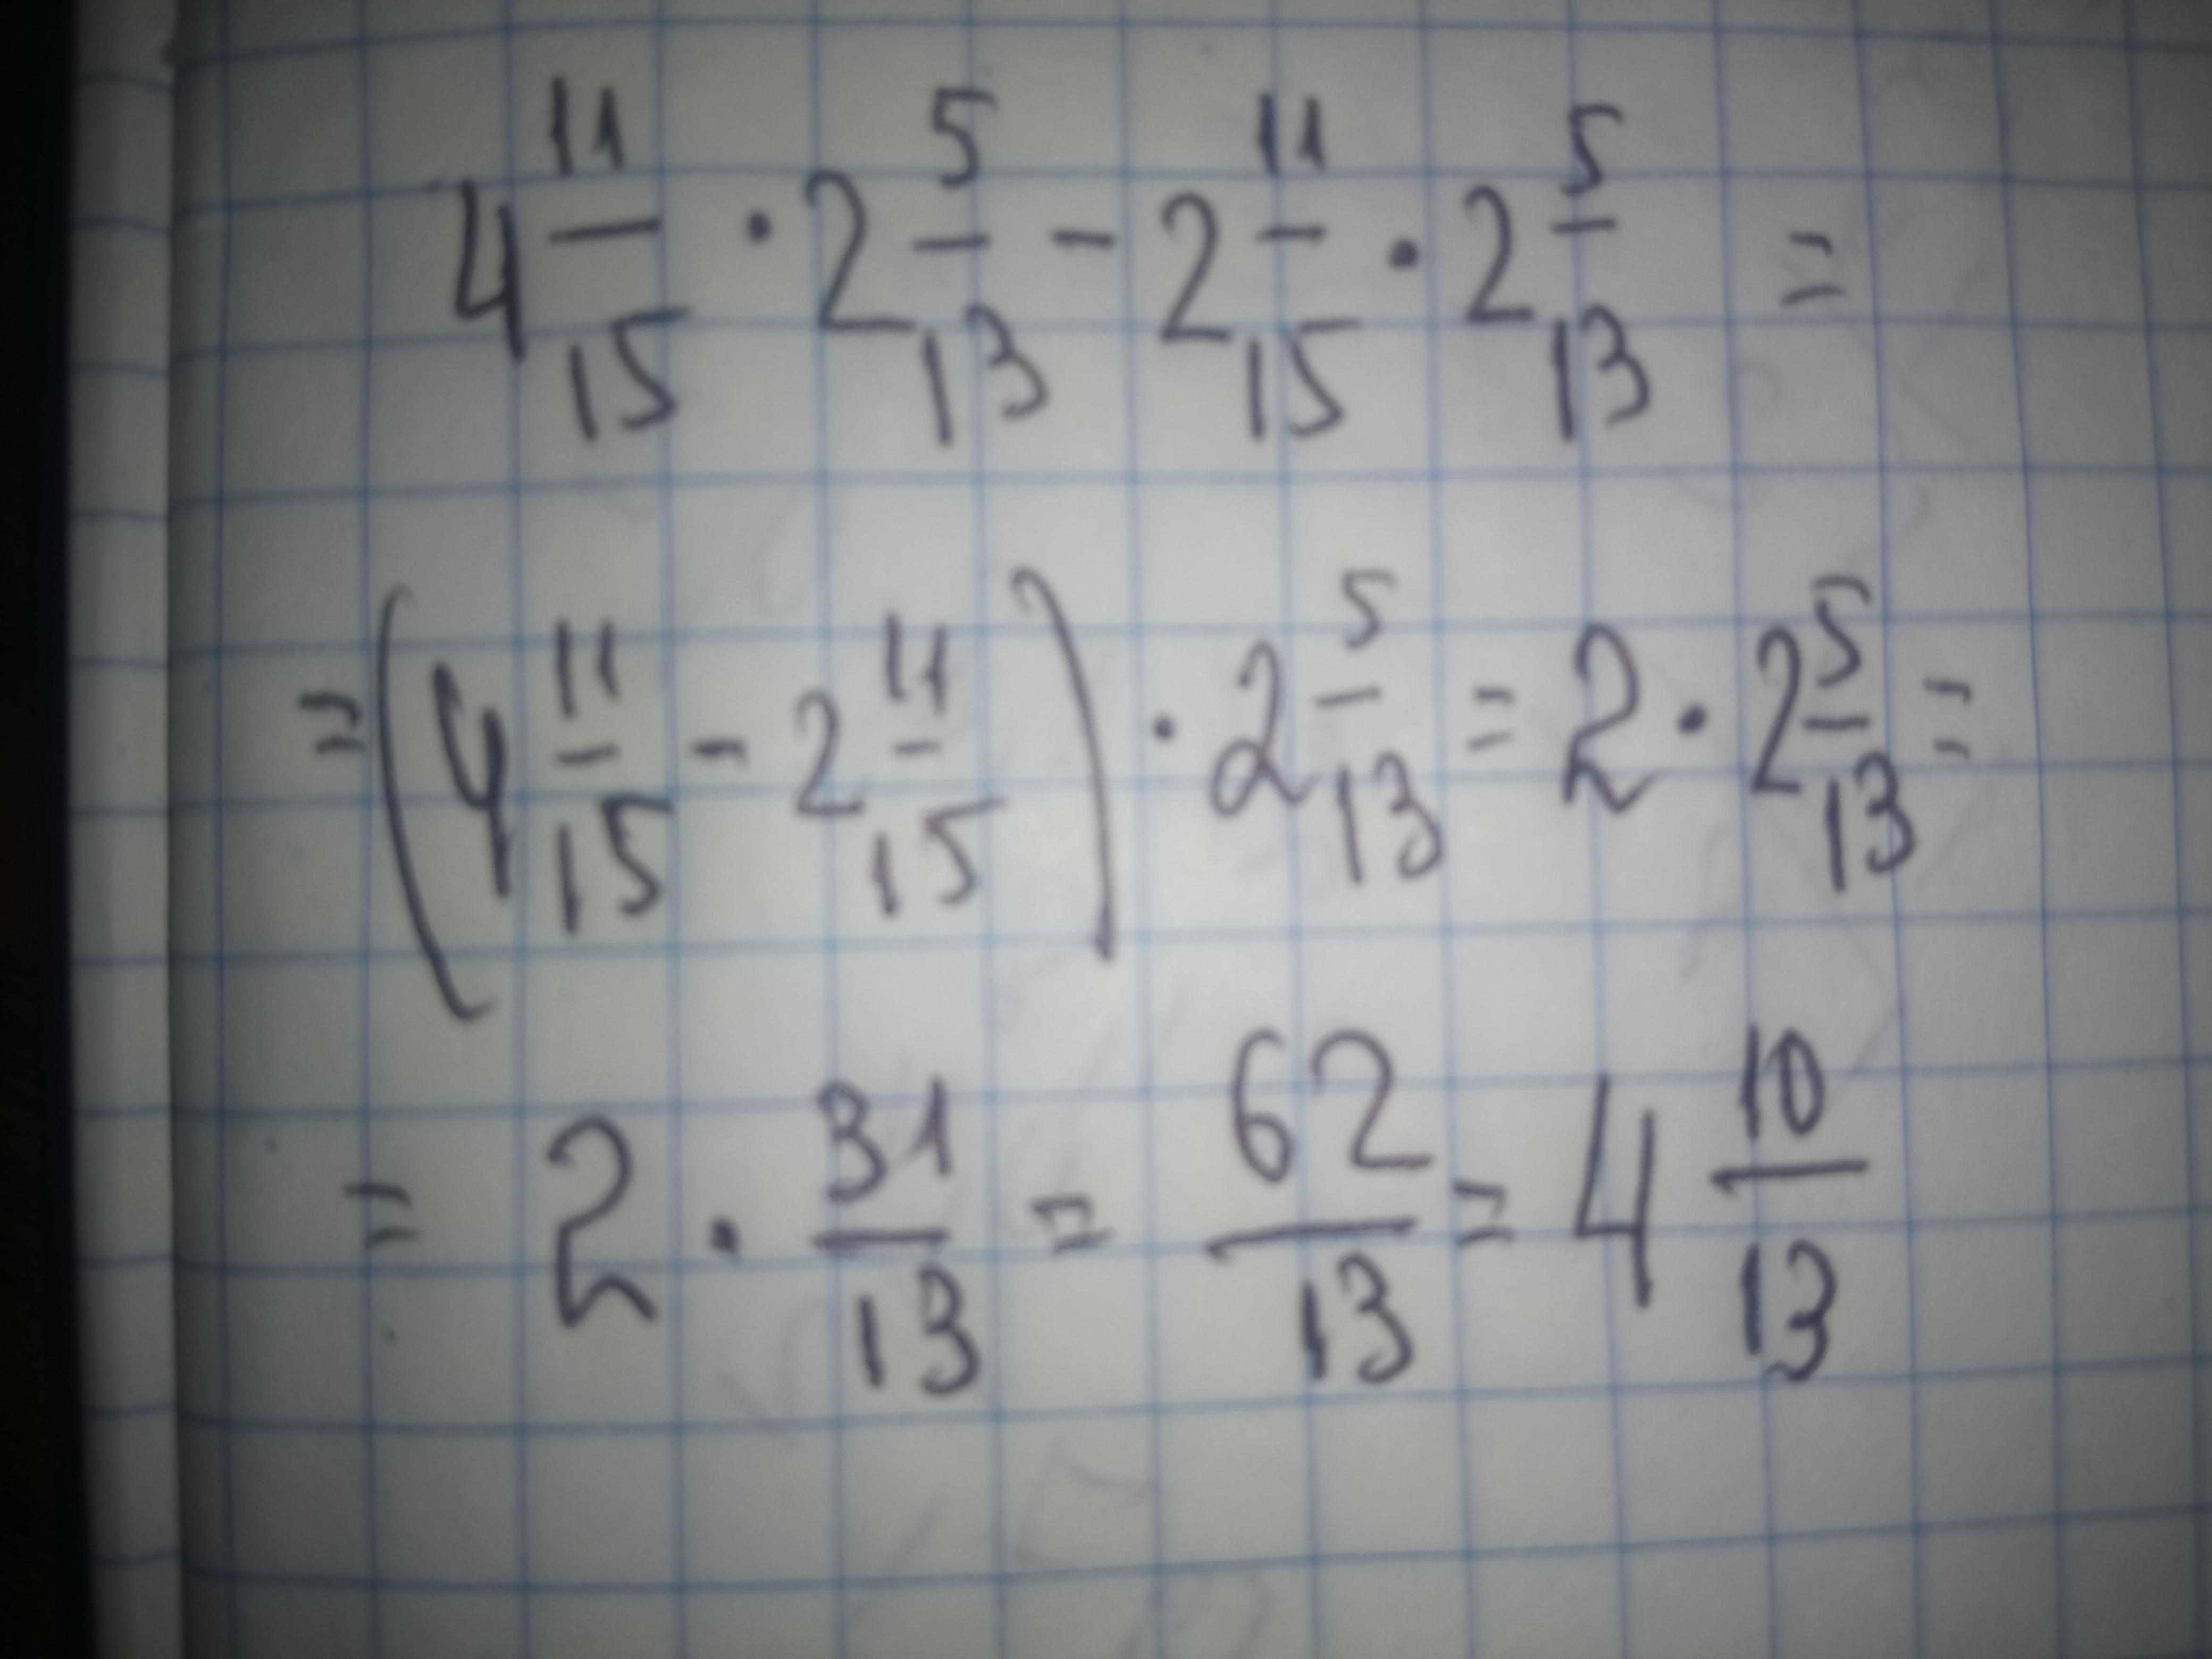 4 11/15 · 2 5/13 - 2 11/15 · 2 5/13 =
= (4 11/15 - 2 11/15) · 2 5/13 = 2 · 2 5/13 =
= 2 · 31/13 = 62/13 = 4 10/13